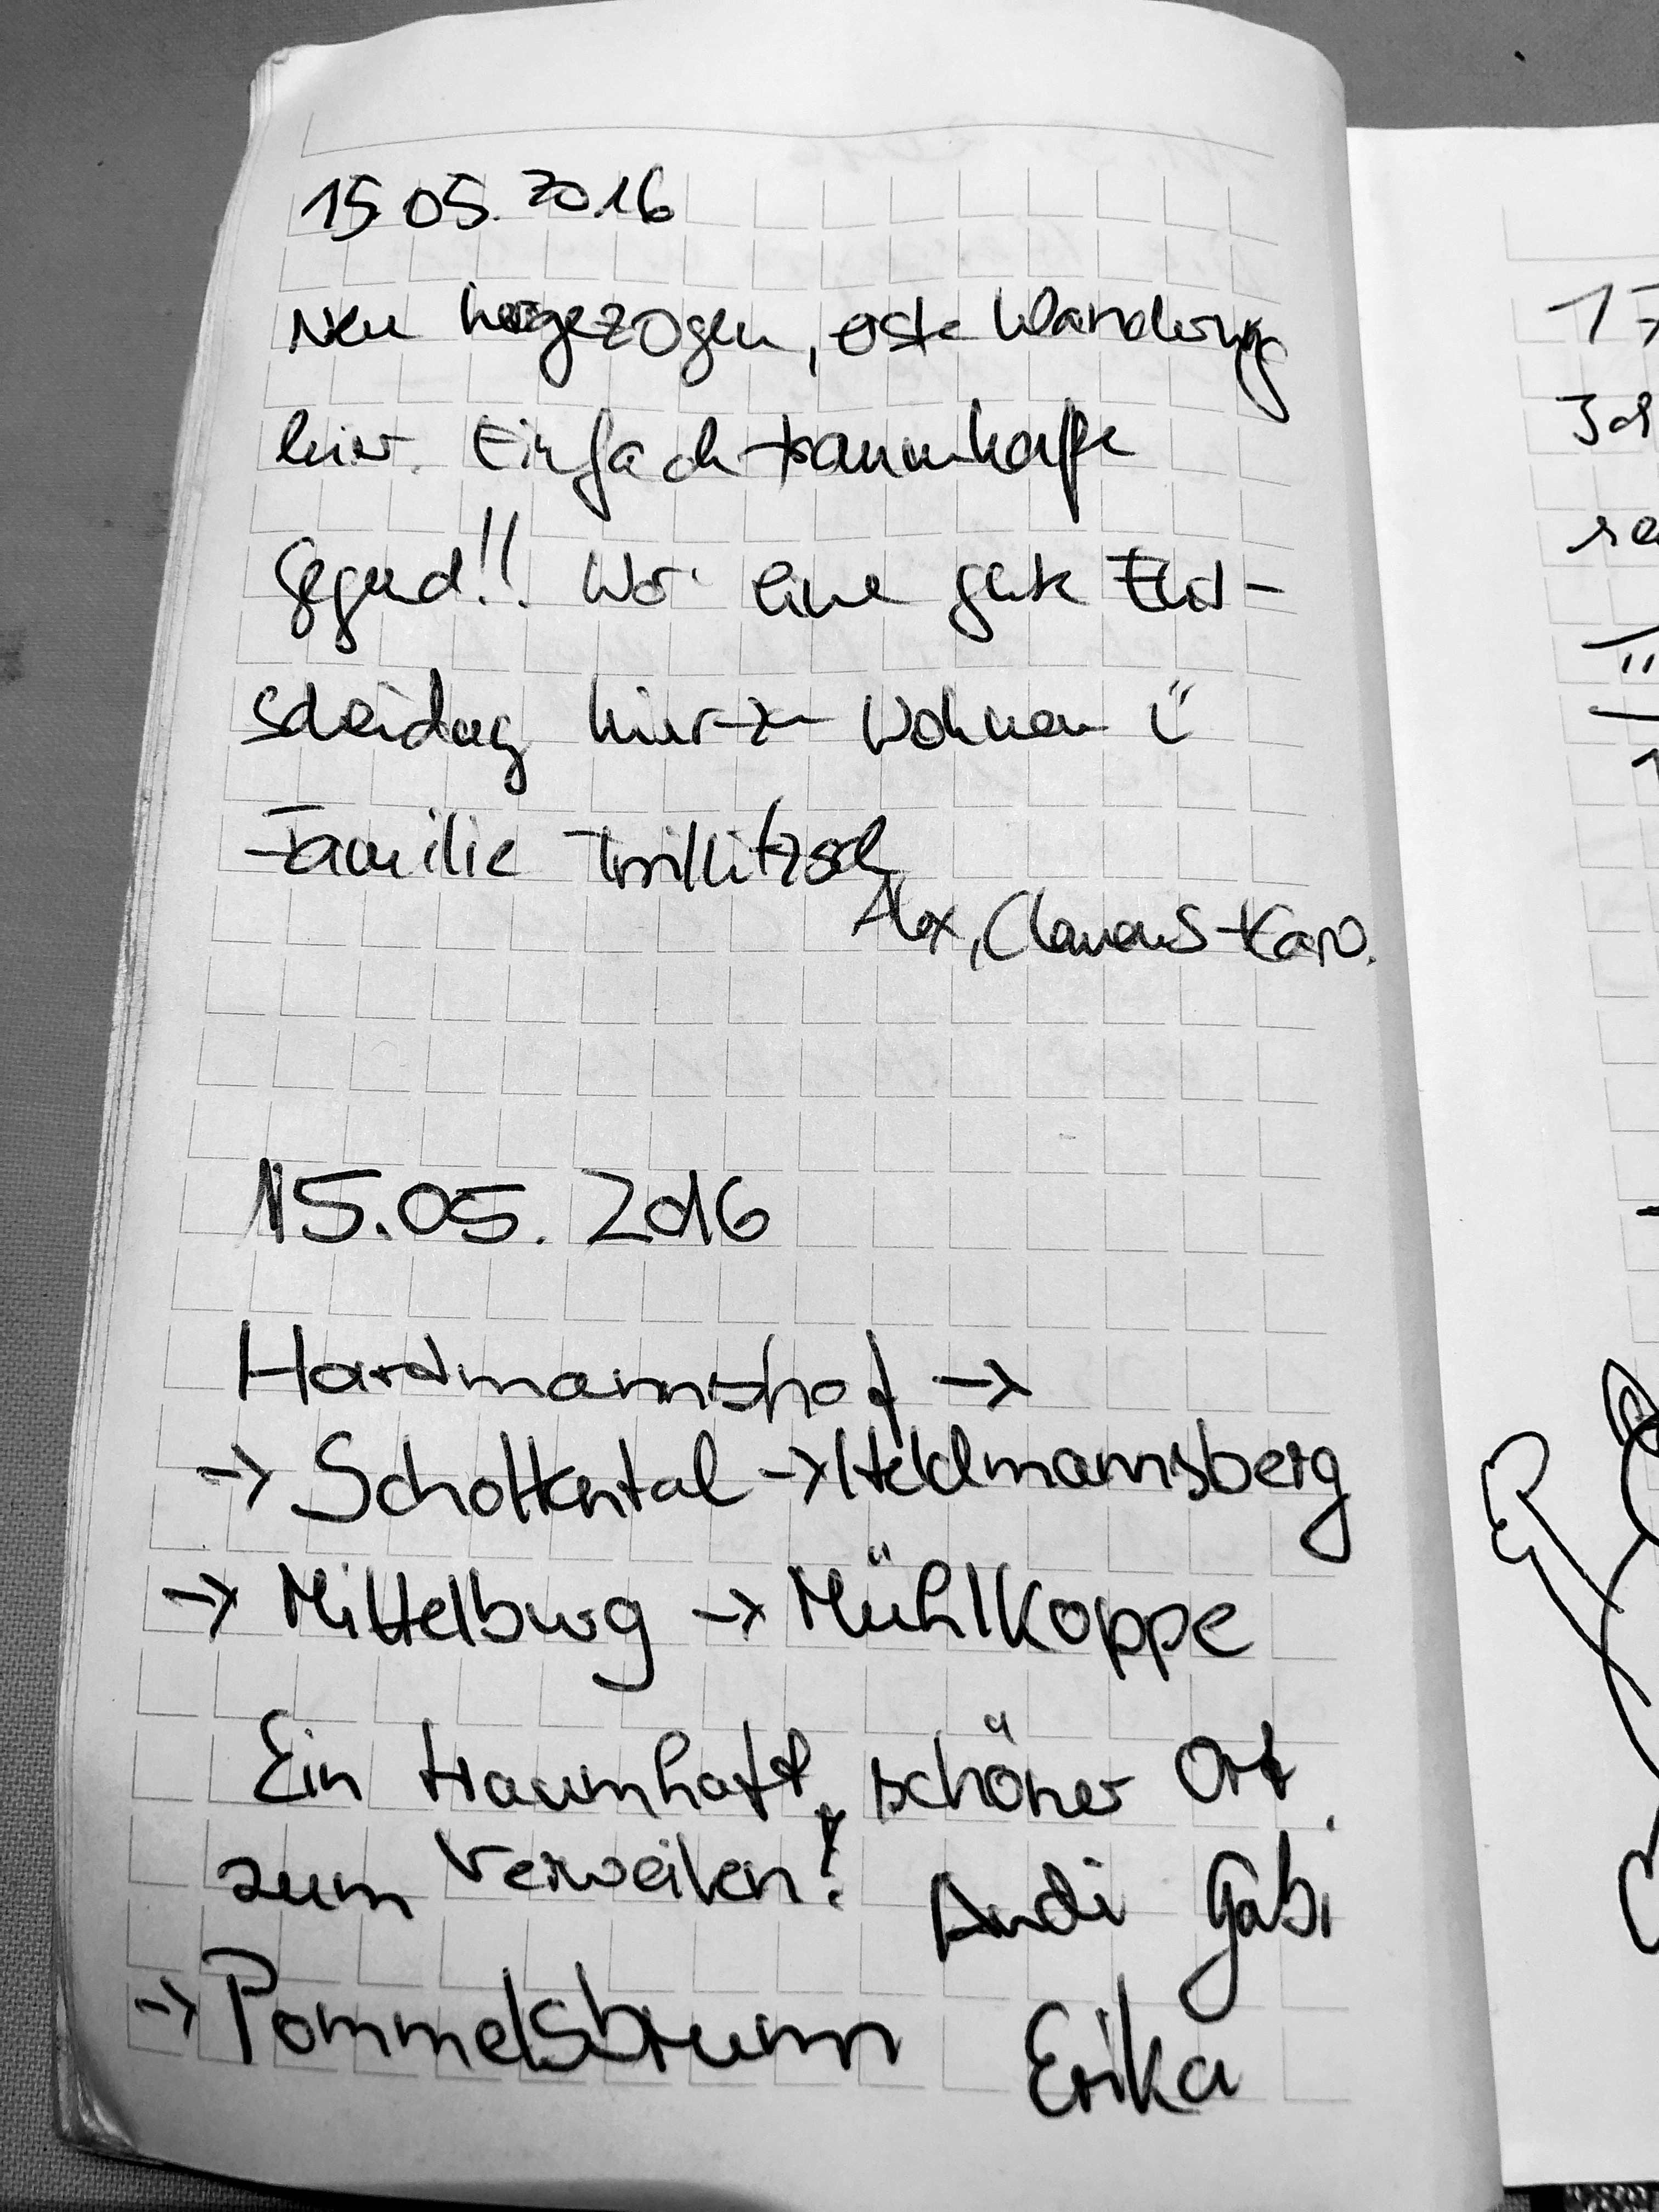 15.05.2016
Neu hergezogen, erste Wanderung
hier. Einfach traumhafte
Gegend!! War eine gute Ent-
scheidung hier zu wohnen
Familie Trillitzsch
Alex, Clemens + Karo.
15.05.2016
Hartmannshof →
→ Schottental → Heldmannsberg
→ Mittelburg → Mühlkoppe
Ein traumhaft, schöner Ort
zum Verweilen! Andi Gabi
→ Pommelsbrunn Erika
17